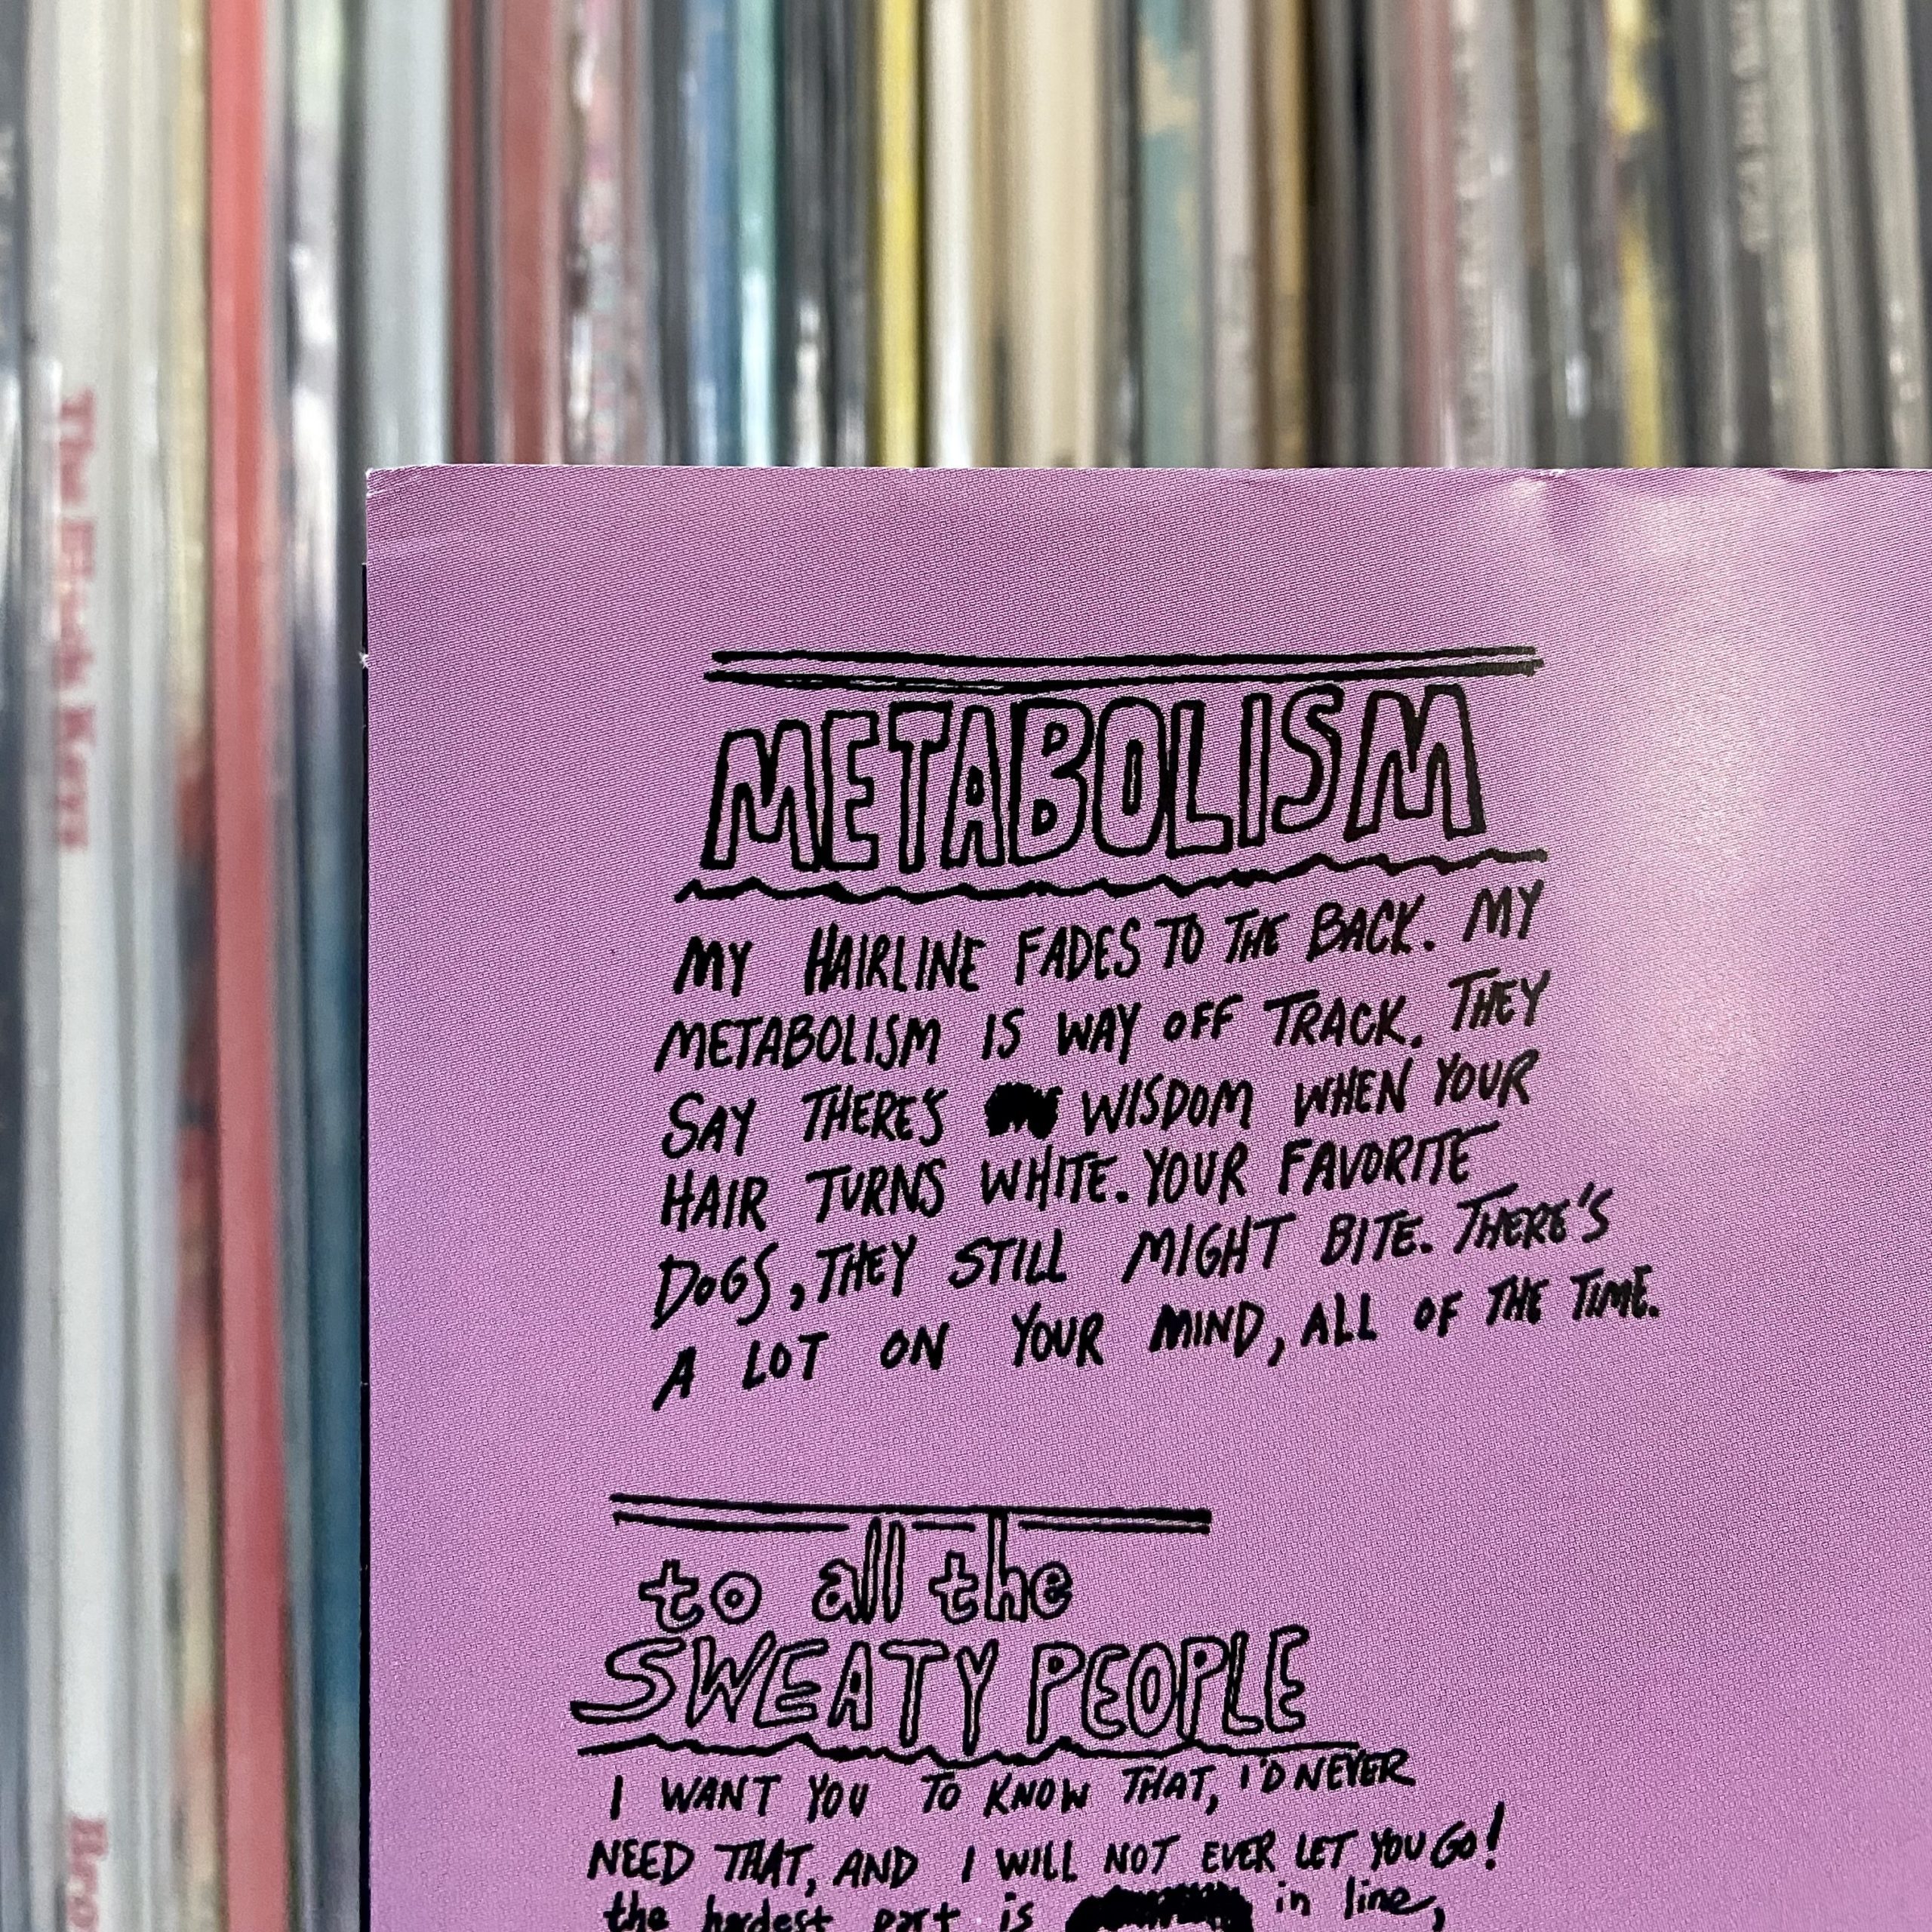 The Black Keys
Bro
METABOLISM
MY HAIRLINE FADES TO THE BACK. MY
METABOLISM IS WAY OFF TRACK. THEY
SAY THERE'S WISDOM WHEN YOUR
HAIR TURNS WHITE. YOUR FAVORITE
DOGS, THEY STILL MIGHT BITE. THERE'S
A LOT ON YOUR MIND, ALL OF THE TIME.
to all the
SWEATY PEOPLE
I WANT YOU TO KNOW THAT, I'D NEVER
NEED THAT, AND I WILL NOT EVER LET YOU GO!
the hardest part is in line,